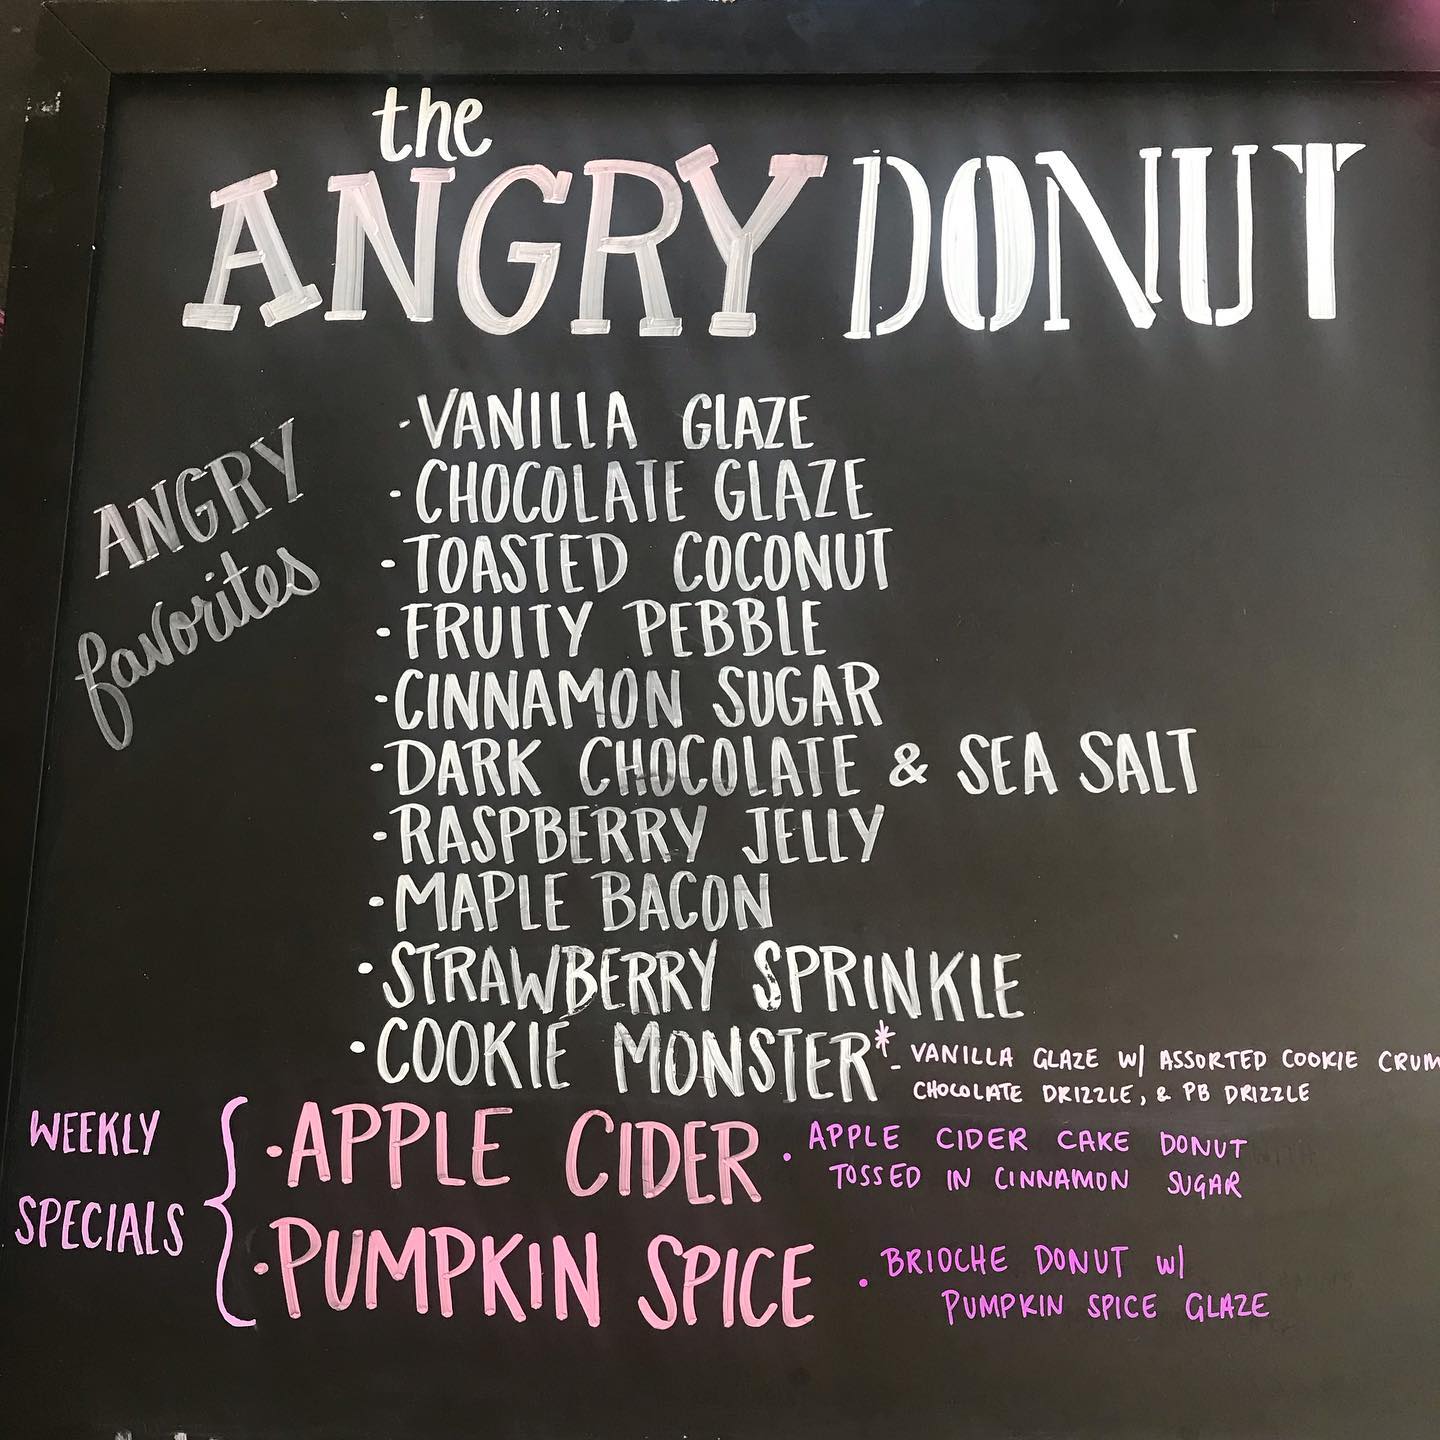 the
ANGRY DONUT
ANGRY
favorites
· VANILLA GLAZE
· CHOCOLATE GLAZE
· TOASTED COCONUT
· FRUITY PEBBLE
· CINNAMON SUGAR
· DARK CHOCOLATE & SEA SALT
· RASPBERRY JELLY
· MAPLE BACON
· STRAWBERRY SPRINKLE
· COOKIE MONSTER*
- VANILLA GLAZE W/ ASSORTED COOKIE CRUM
CHOCOLATE DRIZZLE, & PB DRIZZLE
WEEKLY
SPECIALS
· APPLE CIDER
· APPLE CIDER CAKE DONUT
TOSSED IN CINNAMON SUGAR
· PUMPKIN SPICE
· BRIOCHE DONUT W/
PUMPKIN SPICE GLAZE